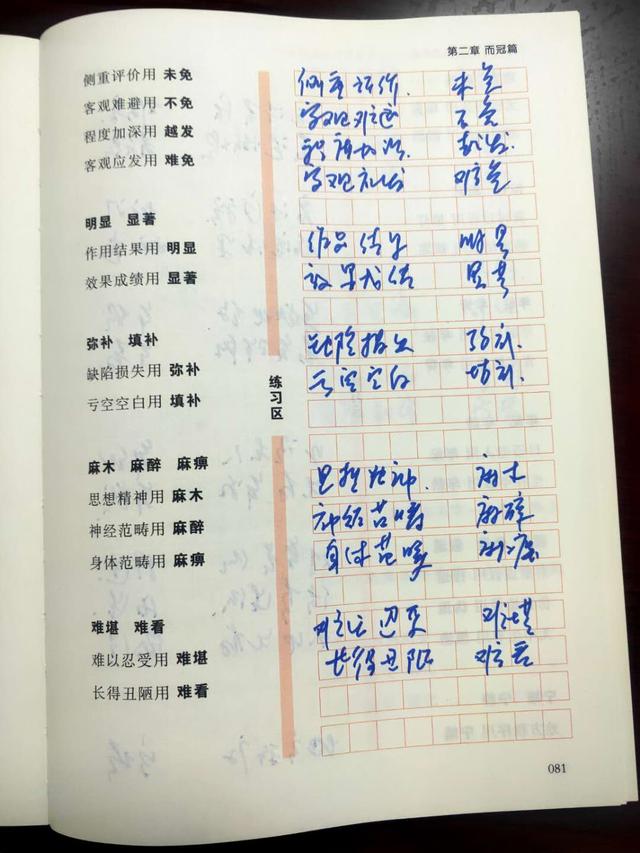 第二章 而冠篇
侧重评价用 未免
客观难避用 不免
程度加深用 越发
客观应发用 难免
明显 显著
作用结果用 明显
效果成绩用 显著
弥补 填补
缺陷损失用 弥补
亏空空白用 填补
麻木 麻醉 麻痹
思想精神用 麻木
神经范畴用 麻醉
身体范畴用 麻痹
难堪 难看
难以忍受用 难堪
长得丑陋用 难看
练习区
侧重评价 未免
客观难避 不免
程度加深 越发
客观应发 难免
作用结果 明显
效果成绩 显著
缺陷损失 弥补
亏空空白 填补
思想精神 麻木
神经范畴 麻醉
身体范畴 麻痹
难以忍受 难堪
长得丑陋 难看
081